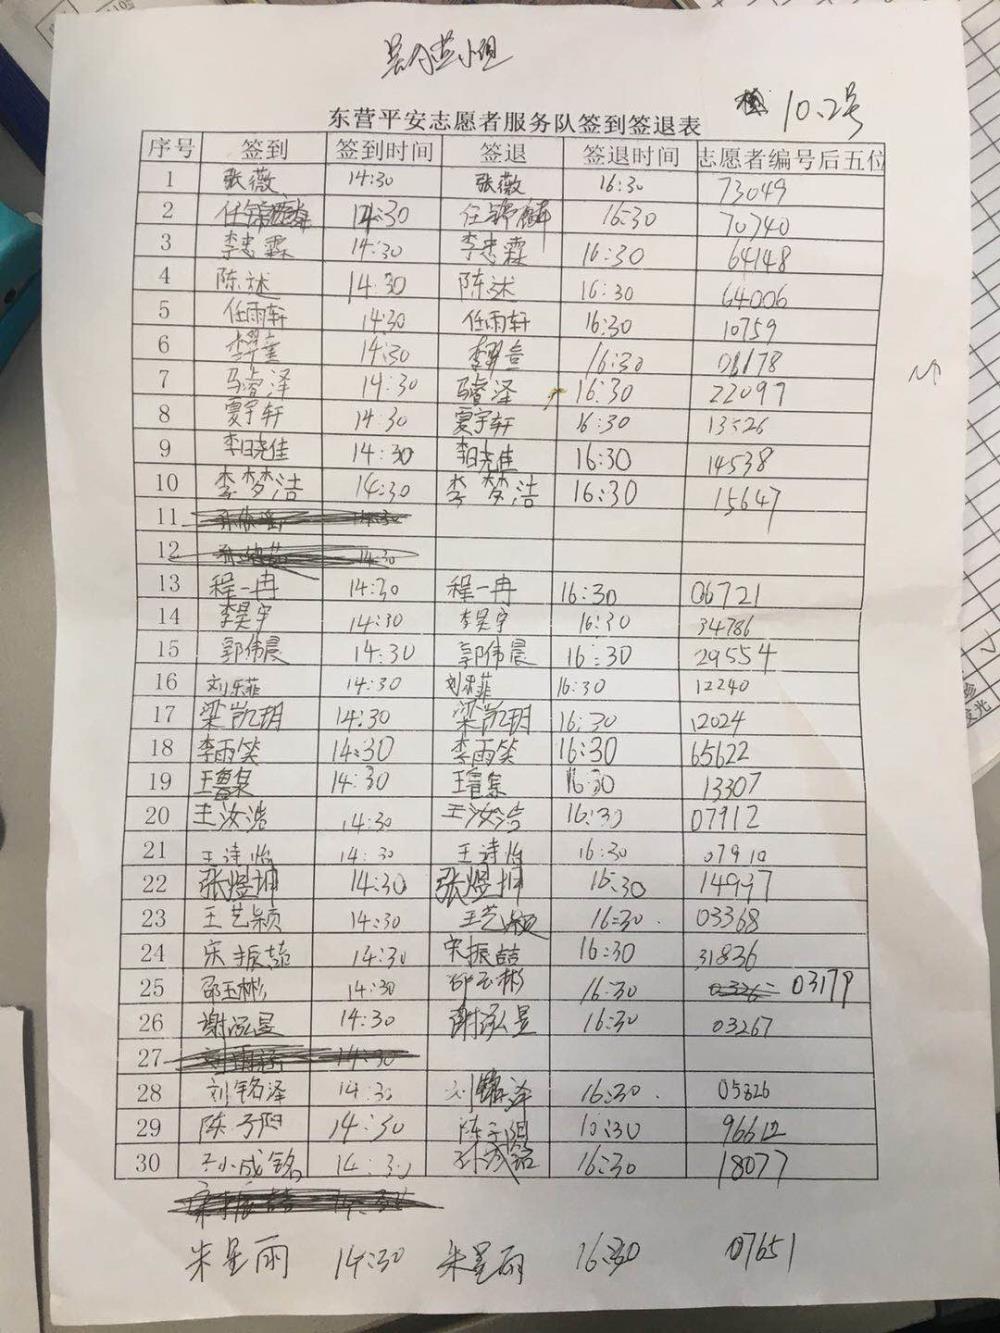 10.2号
东营平安志愿者服务队签到签退表
序号 签到 签到时间 签退 签退时间 志愿者编号后五位
1 张薇 14:30 张薇 16:30 73049
2 14:30 16:30 70740
3 李志霖 14:30 李志霖 16:30 64148
4 陈述 14:30 陈述 16:30 64006
5 任雨轩 14:30 任雨轩 16:30 10759
6 14:30 16:30 06178
7 马睿泽 14:30 马睿泽 16:30 22097
8 夏宇轩 14:30 夏宇轩 16:30 13526
9 李晓佳 14:30 16:30 14538
10 李梦洁 14:30 李梦洁 16:30 15647
11 14:30
12 14:30
13 程一冉 14:30 程一冉 16:30 06721
14 李昊宇 14:30 李昊宇 16:30 34786
15 郭伟晨 14:30 郭伟晨 16:30 29554
16 刘乐菲 14:30 刘乐菲 16:30 12240
17 梁凯玥 14:30 梁凯玥 16:30 12024
18 李雨笑 14:30 李雨笑 16:30 65622
19 14:30 16:30 13307
20 王汝浩 14:30 王汝浩 16:30 07912
21 王诗怡 14:30 王诗怡 16:30 07910
22 张煜坤 14:30 张煜坤 16:30 14997
23 王艺颖 14:30 王艺颖 16:30 03368
24 宋振喆 14:30 宋振喆 16:30 31836
25 邵玉彬 14:30 邵玉彬 16:30 03179
26 谢泓昱 14:30 谢泓昱 16:30 03267
27 刘雨涵 14:30
28 刘铭泽 14:30 刘铭泽 16:30 05826
29 陈子阳 14:30 陈子阳 16:30 96612
30 孙成铭 14:30 孙成铭 16:30 18077
宋振喆 14:30
朱星雨 14:30 朱星雨 16:30 07651